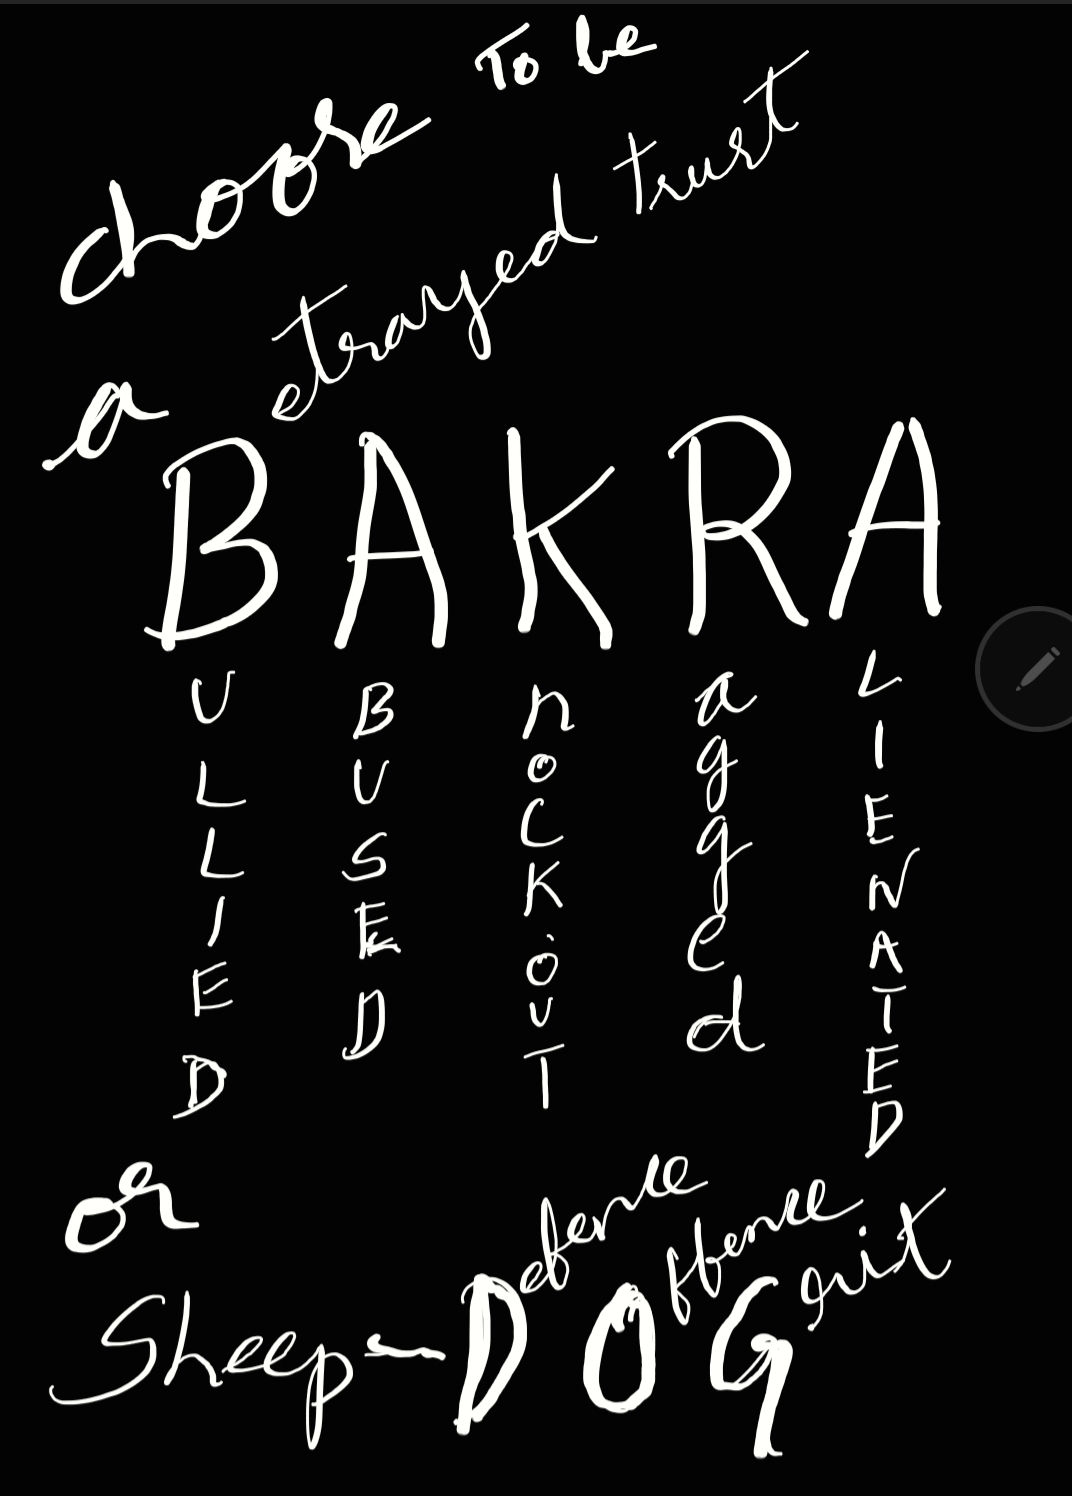 choose To be
a etrayed trust
BAKRA
ULLIED
BUSED
nOCKOUT
agged
LIENATED
or
Sheep-DOG
efence
ffence